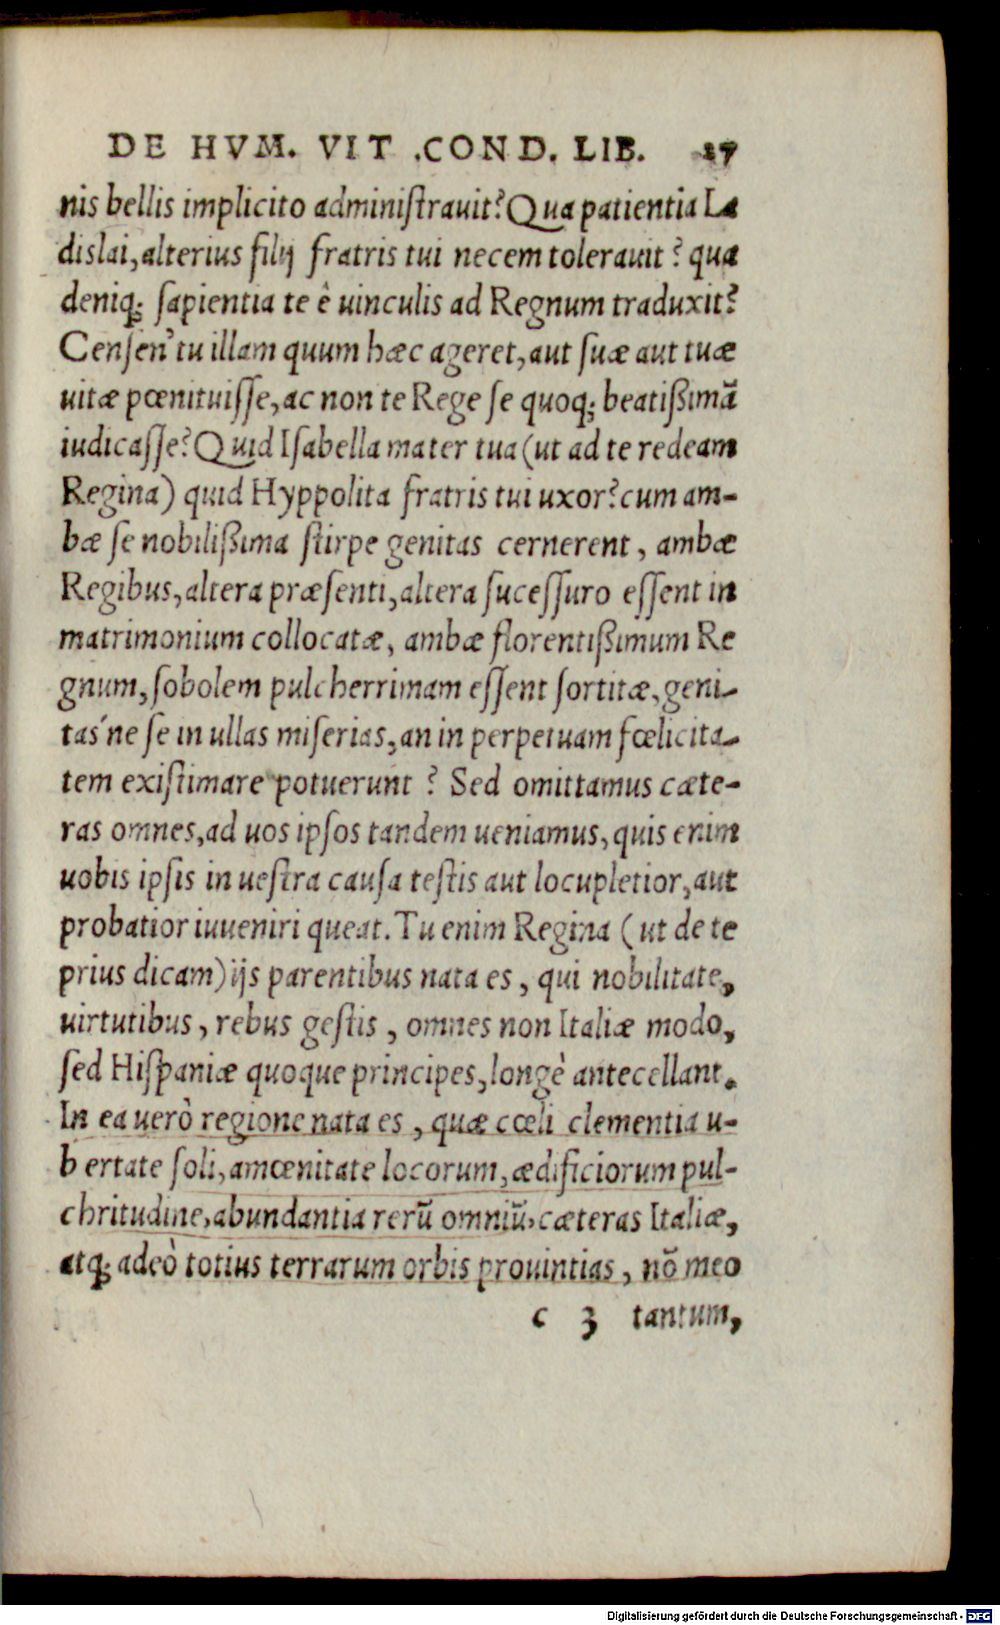 DE HVM. VIT .COND. LIB. 17
nis bellis implicito adminiſtrauit? Qua patientia La
dislai, alterius filij fratris tui necem tolerauit? qua
deniq; ſapientia te è uinculis ad Regnum traduxit?
Cenſen' tu illam quum hæc ageret, aut ſuæ aut tuæ
uitæ pœnituiſſe, ac non te Rege ſe quoq; beatißimã
iudicaſſe? Quid Iſabella mater tua (ut ad te redeam
Regina) quid Hyppolita fratris tui uxor? cum am-
bæ ſe nobilißima ſtirpe genitas cernerent, ambæ
Regibus, altera præſenti, altera ſuceſſuro eſſent in
matrimonium collocatæ, ambæ florentißimum Re
gnum, ſobolem pulcherrimam eſſent ſortitæ, geni-
tas'ne ſe in ullas miſerias, an in perpetuam fœlicita-
tem exiſtimare potuerunt? Sed omittamus cæte-
ras omnes, ad uos ipſos tandem ueniamus, quis enim
uobis ipſis in ueſtra cauſa teſtis aut locupletior, aut
probatior iuueniri queat. Tu enim Regina (ut de te
prius dicam) ijs parentibus nata es, qui nobilitate,
uirtutibus, rebus geſtis, omnes non Italiæ modo,
ſed Hiſpaniæ quoque principes, longè antecellant.
In ea uerò regione nata es, quæ cœli clementia u-
bertate ſoli, amœnitate locorum, ædificiorum pul-
chritudine, abundantia rerũ omniũ, cæteras Italiæ,
atq; adeò totius terrarum orbis prouintias, nõ meo
c 3 tantum,
Digitalisierung gefördert durch die Deutsche Forschungsgemeinschaft - DFG